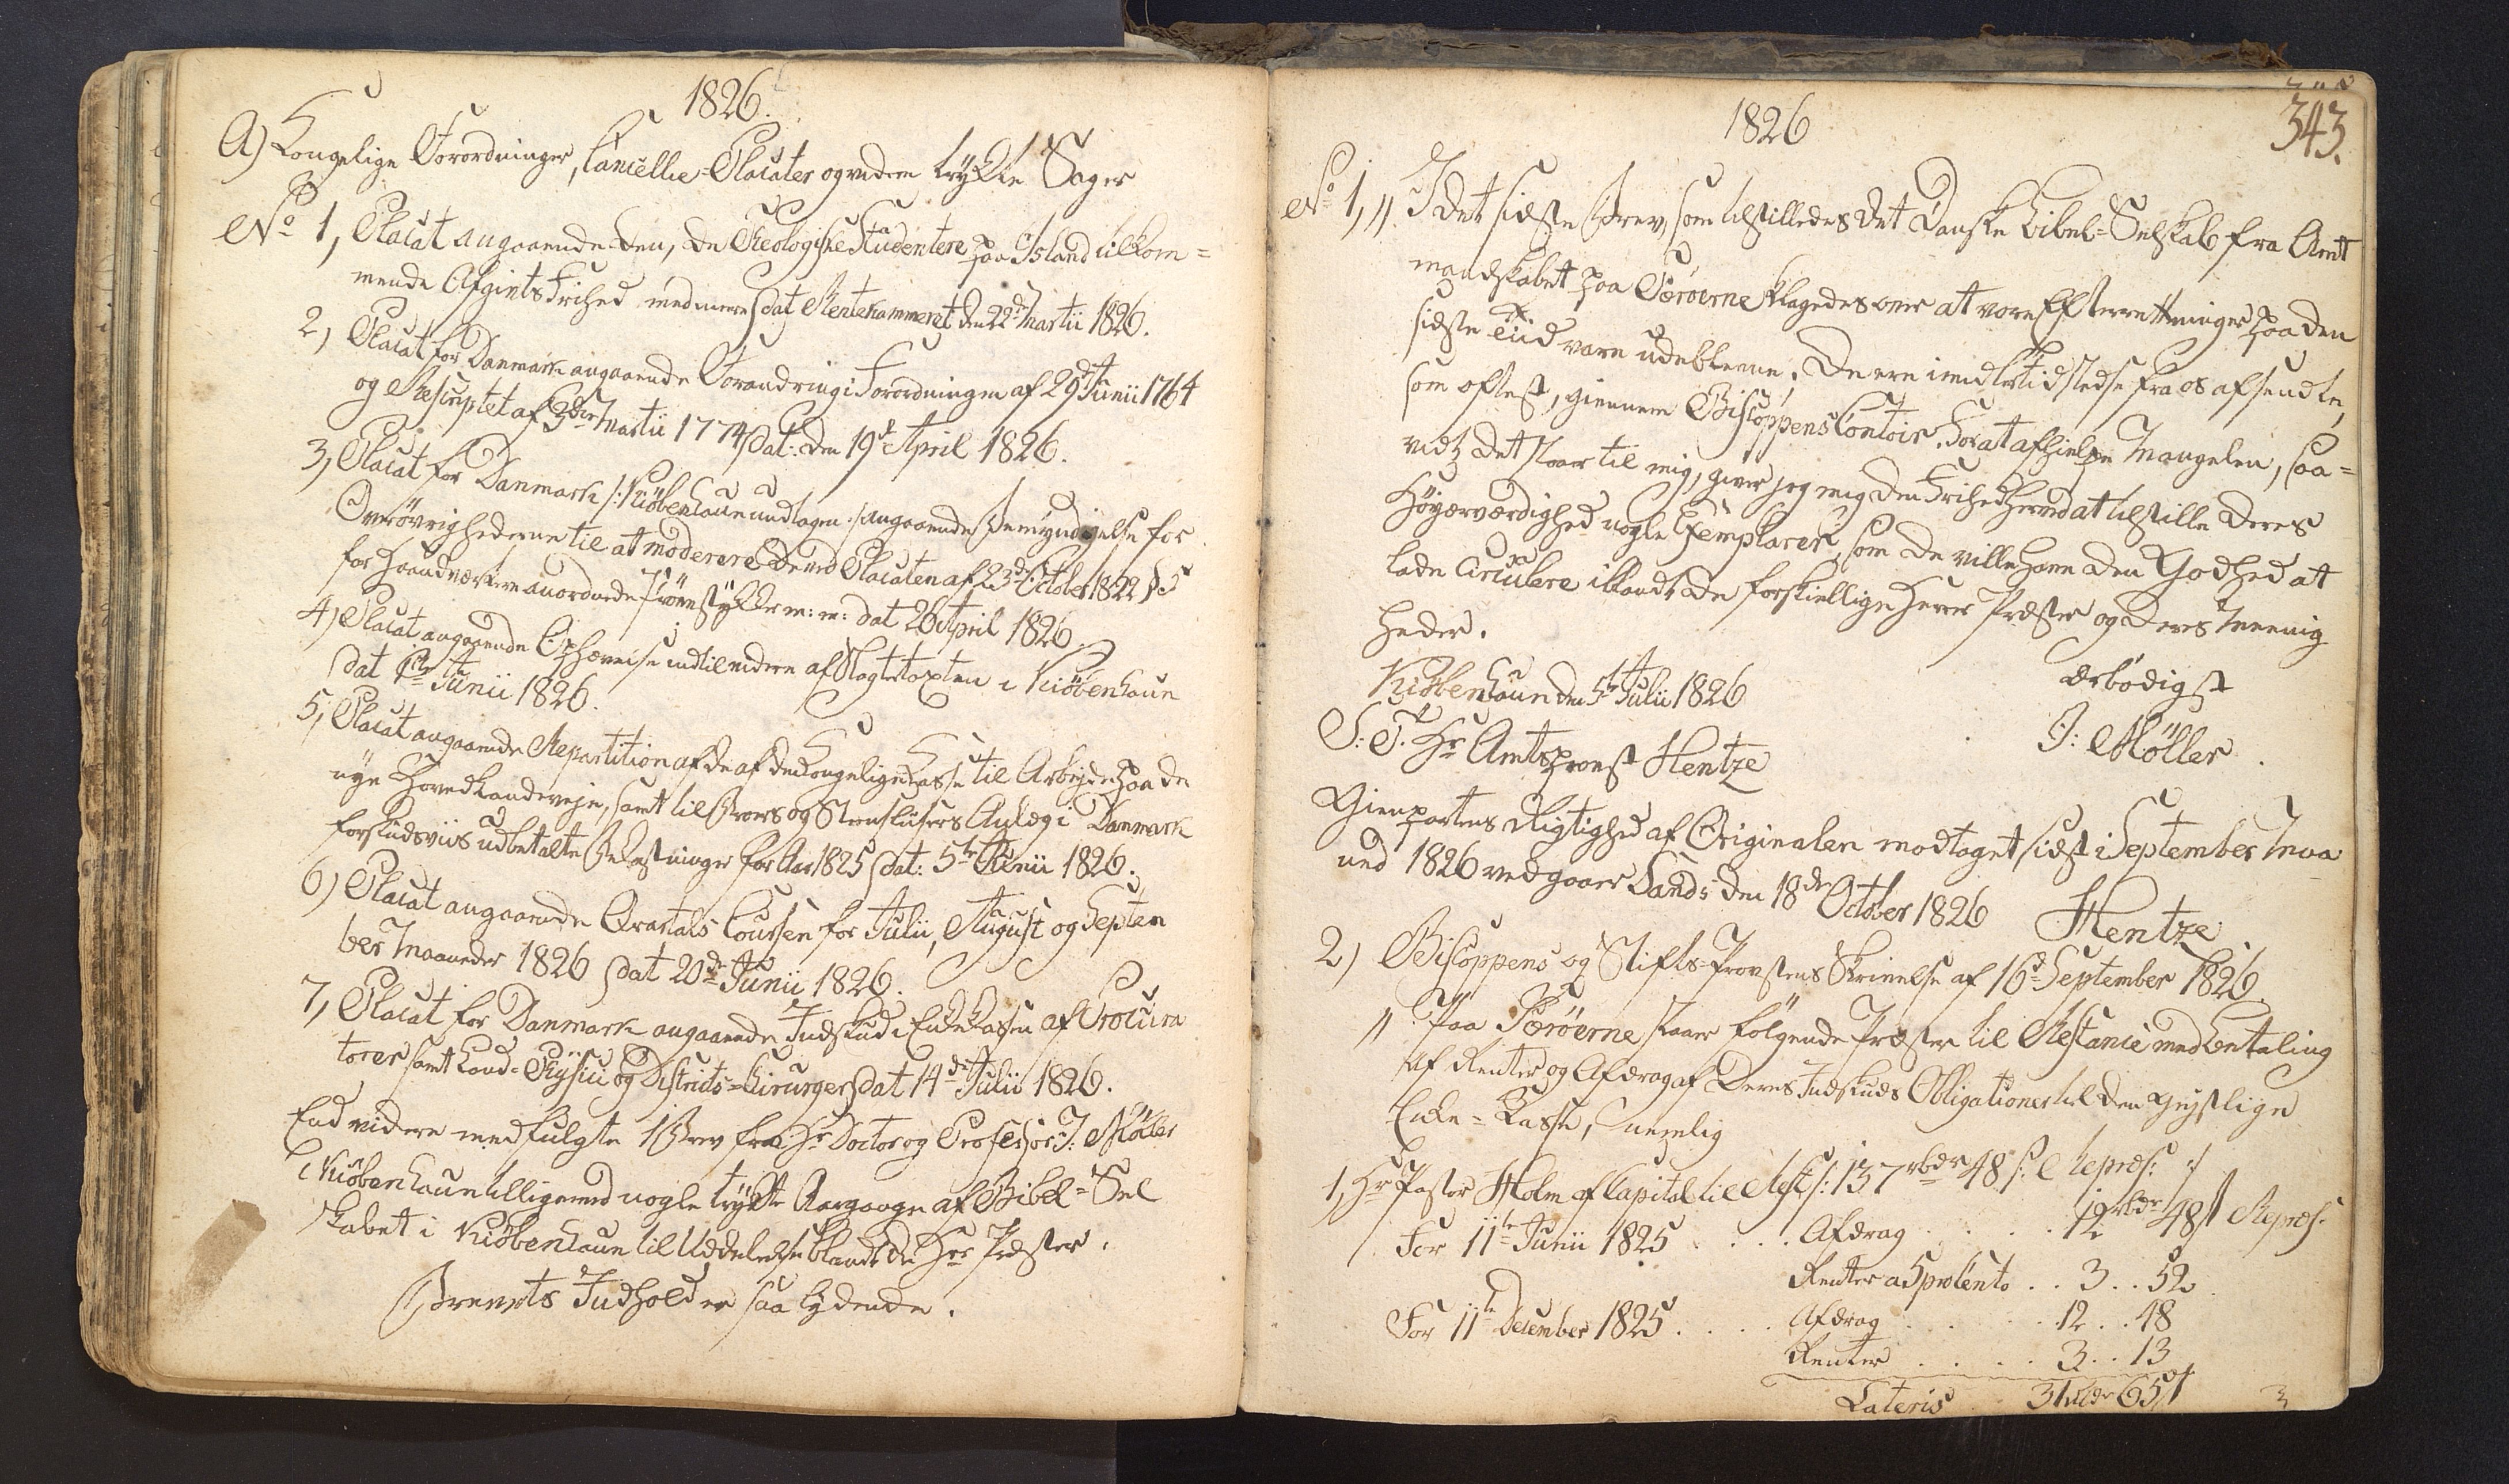 1826.
A) Kongelige Forordninger, Cancellie-Placater og videre trykte Sager
No 1, Placat angaaende den, de Theologiske Studentere paa Island tilkom=
mende Afgivts Frihed med mere dat Rentekammeret den 22de Martii 1826.
2) Placat for Danmark angaaende Forandring i Forordningen af 29de Junii 1764
og Rescriptet af 3die Martii 1774 dat: den 19de April 1826.
3, Placat for Danmark /: Kiöbenhavn undtagen :/ angaaende Bemyndigelse for
Overövrighederne til at moderere de ved Placaten af 23de October 1822
for Haandværkere anordnede Prövestykker m: m: dat 26 April 1826.
4) Placat angaaende Ophævelse indtil videre af Slagtetaxten i Kiöbenhavn
dat 1ste Junii 1826.
5, Placat angaaende Repartition af de af den Kongelige Kasse til Arbejde paa de
nye Hovedlandeveje, samt til Broers og Steenslusers Anlæg i Danmark
forskudsviis udbetalte Bekostninger for Aar 1825 dat: 5te Junii 1826.
6) Placat angaaende Qvartals Coursen for Julii, August og Septem
ber Maaneder 1826 dat 20de Junii 1826.
7, Placat for Danmark angaaende Indskud i Enkekassen af Procura
torer samt Land-Physici og Districts-Chirurger dat 14de Julii 1826.
End videre medfulgte 1 Brev fra Hr Doctor og Professor J: Möller
i Kiöbenhavn tilligemed nogle trykte Aargange af Bibel-Sel
skabet i Kiöbenhavn til Uddeelelse blandt de Hrr Præster.
Brevets Indhold er saa lydende.
343.
1826
No 1, „ I det sidste Brev, som tilstilledes det Danske Bibel-Selskab fra Amt
mandskabet paa Færöerne klagedes over at vore Efterretninger paa den
sidste Tiid vare udeblevne. De ere imidlertid stedse fra os afsendte,
som oftest, giennem Biscoppens Contoir. For at afhielpe Mangelen, saa=
vidt det staaer til mig, giver jeg mig den Frihed herved at tilstille Deres
Höyærværdighed nogle Exemplarer, som De ville have den Godhed at
lade circulere iblandt de forskiellige Herrer Præster og Deres Meenig
heder.
Kiöbenhavn den 5te Julii 1826
ærbödigst
J: Möller.
S: T. Hr Amtsprovst Hentze
Gienpartens Rigtighed af Originalen modtaget sidst i September Maa
ned 1826 vedgaaer Sands den 18de October 1826 Hentze
2) Biscoppens og Stifts-Provstens Skrivelse af 16de September 1826
„ Paa Færöerne staaer fölgende Præster til Restance med Betaling
af Renter og Afdrag af Deres Indskuds Obligationer til den geistlige
Enke-Kasse, nemlig
1, Hr Pastor Holm af Capital til Rest /: 137 rbdr 48 s: Repræs: :/
For 11te Junii 1825 . . . . Afdrag . . . . . 12 rbdr 48 s Repræs:
Renter a 5 proCento . . 3 . . 52
For 11te December 1825 . . . . Afdrag . . . . . 12 . . 48
Renter . . . . 3 . . 13
Lateris 31 rbdr 65 s